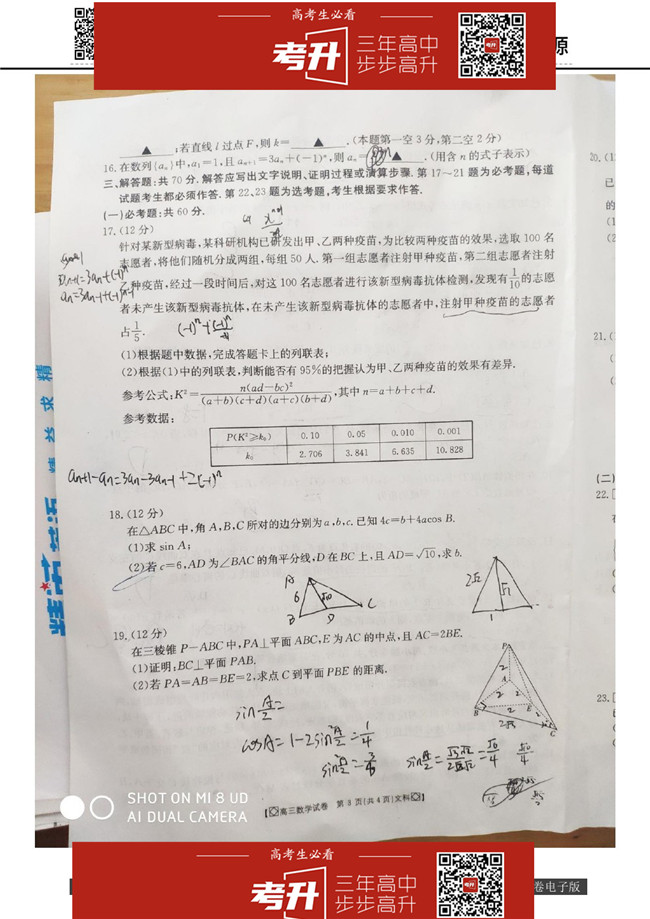 高考生必看
考升 三年高中
步步高升
源
▲ ;若直线 l 过点 F,则 k= ▲ .(本题第一空 3 分,第二空 2 分)
16.在数列{aₙ}中,a₁=1,且 aₙ₊₁=3aₙ+(-1)ⁿ,则 aₙ= ▲ .(用含 n 的式子表示)
三、解答题:共 70 分.解答应写出文字说明、证明过程或演算步骤.第 17~21 题为必考题,每道
试题考生都必须作答.第 22、23 题为选考题,考生根据要求作答.
(一)必考题:共 60 分.
17.(12 分)
针对某新型病毒,某科研机构已研发出甲、乙两种疫苗,为比较两种疫苗的效果,选取 100 名
志愿者,将他们随机分成两组,每组 50 人.第一组志愿者注射甲种疫苗,第二组志愿者注射
乙种疫苗,经过一段时间后,对这 100 名志愿者进行该新型病毒抗体检测,发现有 1/10 的志愿
者未产生该新型病毒抗体,在未产生该新型病毒抗体的志愿者中,注射甲种疫苗的志愿者
占 1/5.
(1)根据题中数据,完成答题卡上的列联表;
(2)根据(1)中的列联表,判断能否有 95%的把握认为甲、乙两种疫苗的效果有差异.
参考公式:K²=n(ad-bc)²/(a+b)(c+d)(a+c)(b+d),其中 n=a+b+c+d.
参考数据:
P(K²≥k₀) 0.10 0.05 0.010 0.001
k₀ 2.706 3.841 6.635 10.828
aₙ₊₁-aₙ=3aₙ-3aₙ₋₁+2(-1)ⁿ
18.(12 分)
在△ABC 中,角 A,B,C 所对的边分别为 a,b,c.已知 4c=b+4acos B.
(1)求 sin A;
(2)若 c=6,AD 为∠BAC 的角平分线,D 在 BC 上,且 AD=√10,求 b.
A
6 √10
B D C
2√2
1
19.(12 分)
在三棱锥 P-ABC 中,PA⊥平面 ABC,E 为 AC 的中点,且 AC=2BE.
(1)证明:BC⊥平面 PAB.
(2)若 PA=AB=BE=2,求点 C 到平面 PBE 的距离.
P
2
A
2 2
B 2 E
2√3 C
sin A/2=
cosA=1-2sin²A/2=1/4
20.(1
已
的
(1
(2
21.(
(二)
22.[
23.[
SHOT ON MI 8 UD
AI DUAL CAMERA
【高三数学试卷 第 3 页(共 4 页)文科】
高考生必看
考升 三年高中
步步高升
卷电子版